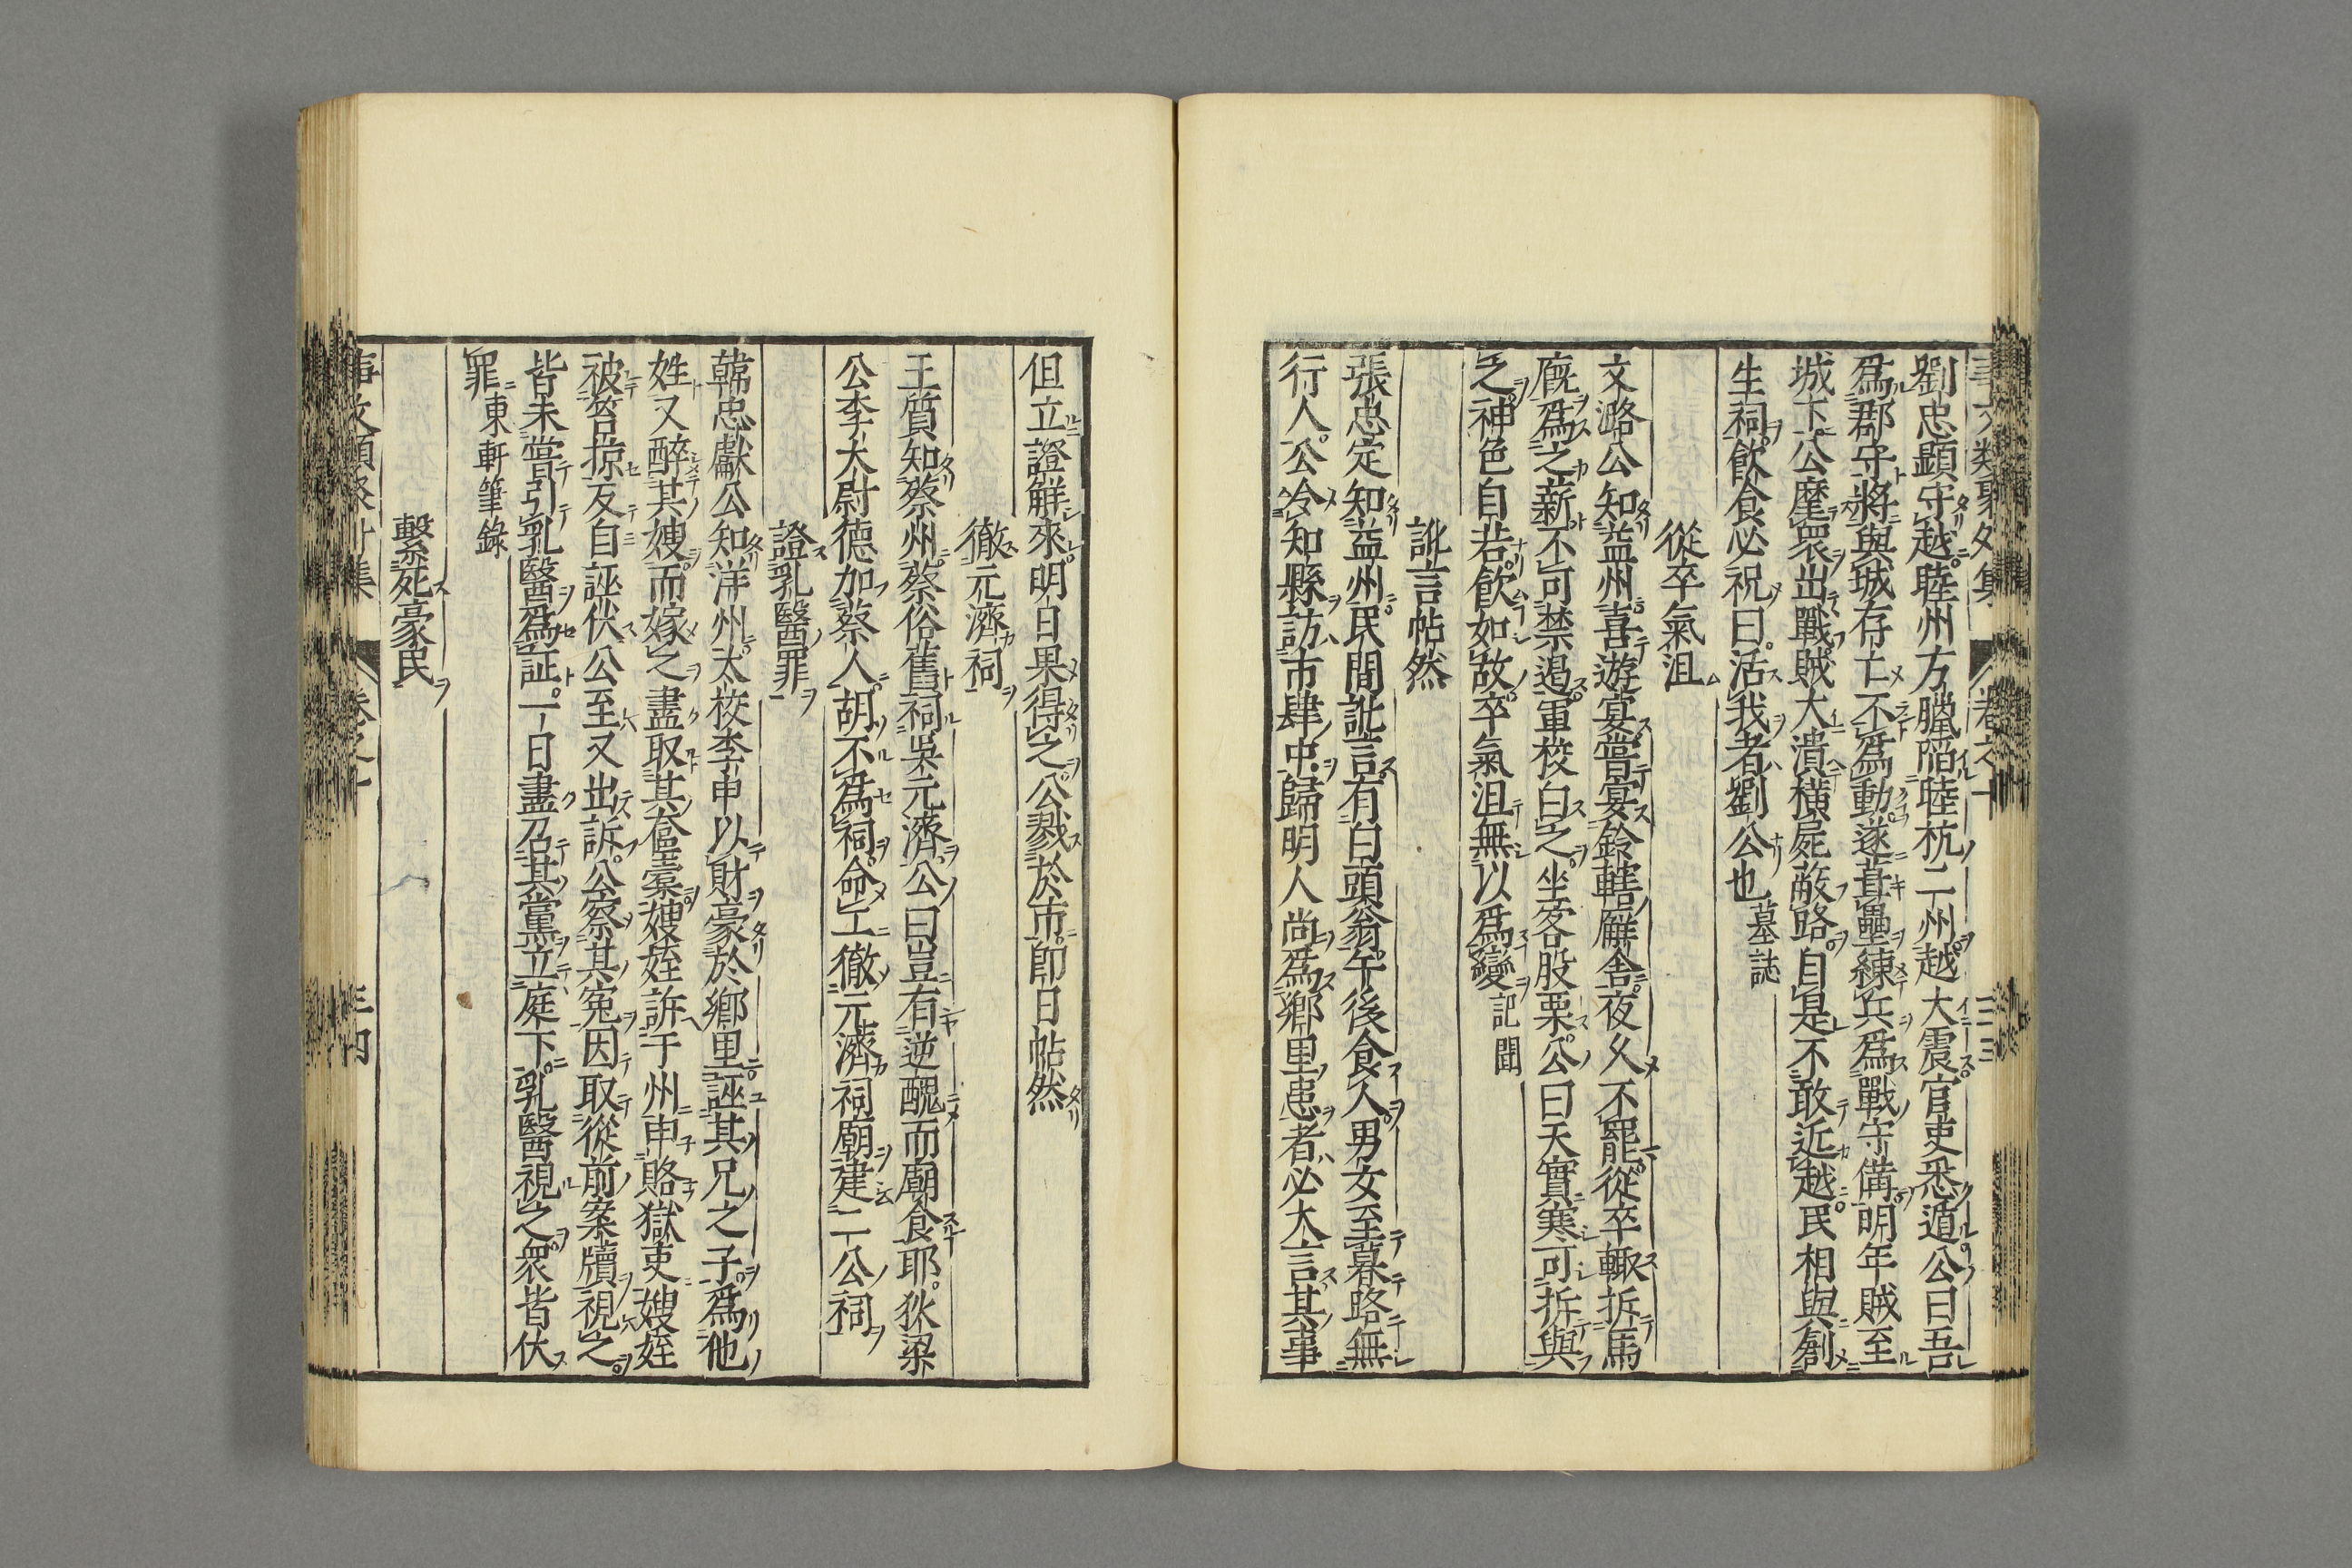 劉忠顯守越睦州方臘陷睦杭二州越大震官吏悉遁公曰吾
爲郡守將與城存亡不爲動遂葺壘練兵爲戰守備明年賊至
城下公麾衆出戰賊大潰橫屍蔽路自是不敢近越民相與創
生祠飲食必祝曰活我者劉公也墓誌
從卒氣沮
文潞公知益州喜遊宴嘗宴鈴轄廨舍夜久不罷從卒輙拆馬
廐爲之薪不可禁遏軍校白之坐客股栗公曰天實寒可拆與
之神色自若飲如故卒氣沮無以爲變記聞
訛言帖然
張忠定知益州民間訛言有白頭翁午後食人男女至暮路無
行人公令知縣訪市肆中歸明人尚爲鄉里患者必大言其事
但立證觧來明日果得之公戮於市即日帖然
徹元濟祠
王質知蔡州蔡俗舊祠吳元濟公曰豈有逆醜而廟食耶狄梁
公李大尉德加蔡人胡不爲祠命工徹元濟祠廟建二公祠
證乳醫罪
韓忠獻公知洋州大校李申以財豪於鄉里誣其兄之子爲他
姓又醉其嫂而嫁之盡取其奩橐嫂姪訴于州申賂獄吏嫂姪
被笞掠反自誣伏公至又出訴公察其冤因取從前案牘視之
皆未嘗引乳醫爲証一日盡召其黨立庭下乳醫視之衆皆伏
罪東軒筆錄
繫死豪民